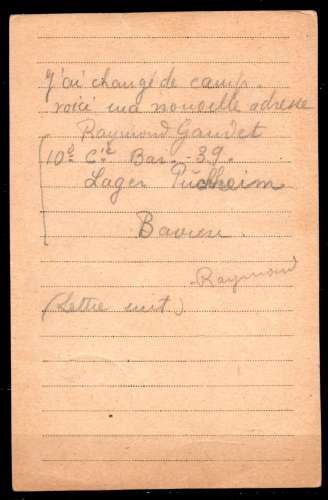 J'ai changé de camp.
voici ma nouvelle adresse
Raymond Gaudet
10e Cie Bar. - 39.
Lager Puchheim
Bavière.
Raymond
(Lettre suit)